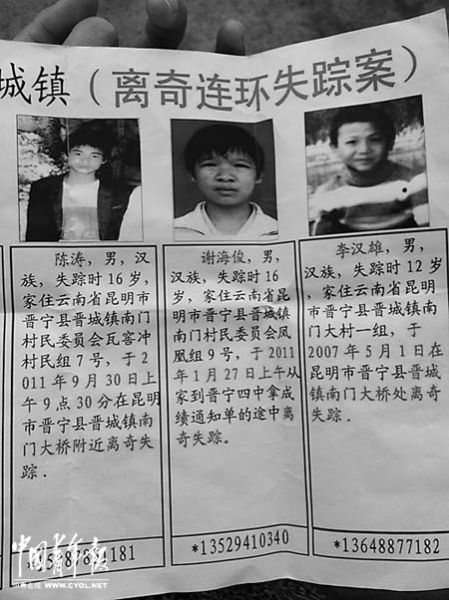 城镇（离奇连环失踪案）
陈涛，男，汉
族，失踪时16岁，
家住云南省昆明市
晋宁县晋城镇南门
村民委员会瓦窑冲
村民组7号，于2
011年9月30日上
午9点30分在昆明
市晋宁县晋城镇南
门大桥附近离奇失
踪．
谢海俊，男，
汉族，失踪时16
岁，家住云南省昆
明市晋宁县晋城镇
南门村民委员会凤
凰组9号，于2011
年1月27日上午从
家到晋宁四中拿成
绩通知单的途中离
奇失踪。
*13529410340
李汉雄，男，
汉族，失踪时12岁
，家住云南省昆明
市晋宁县晋城镇南
门大村一组，于
2007年5月1日在
昆明市晋宁县晋城
镇南门大桥处离奇
失踪．
*13648877182
181
中国青年报
中青在线 WWW.CYOL.NET